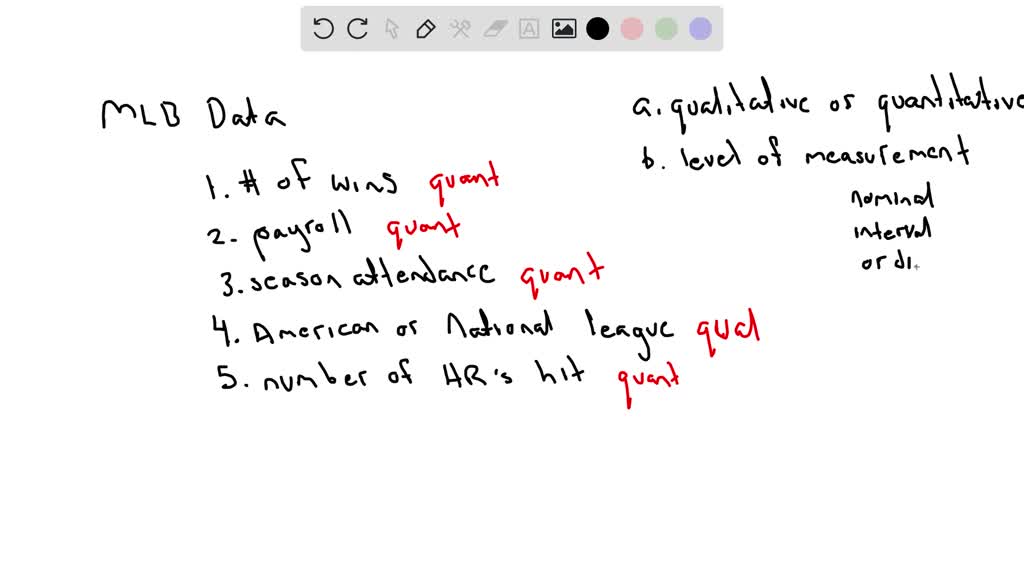 MLB Data
a. qualitative or quantitative
b. level of measurement
nominal
interval
ordi
1. # of wins quant
2. payroll quant
3. season attendance quant
4. American or National league qual
5. number of HR's hit quant